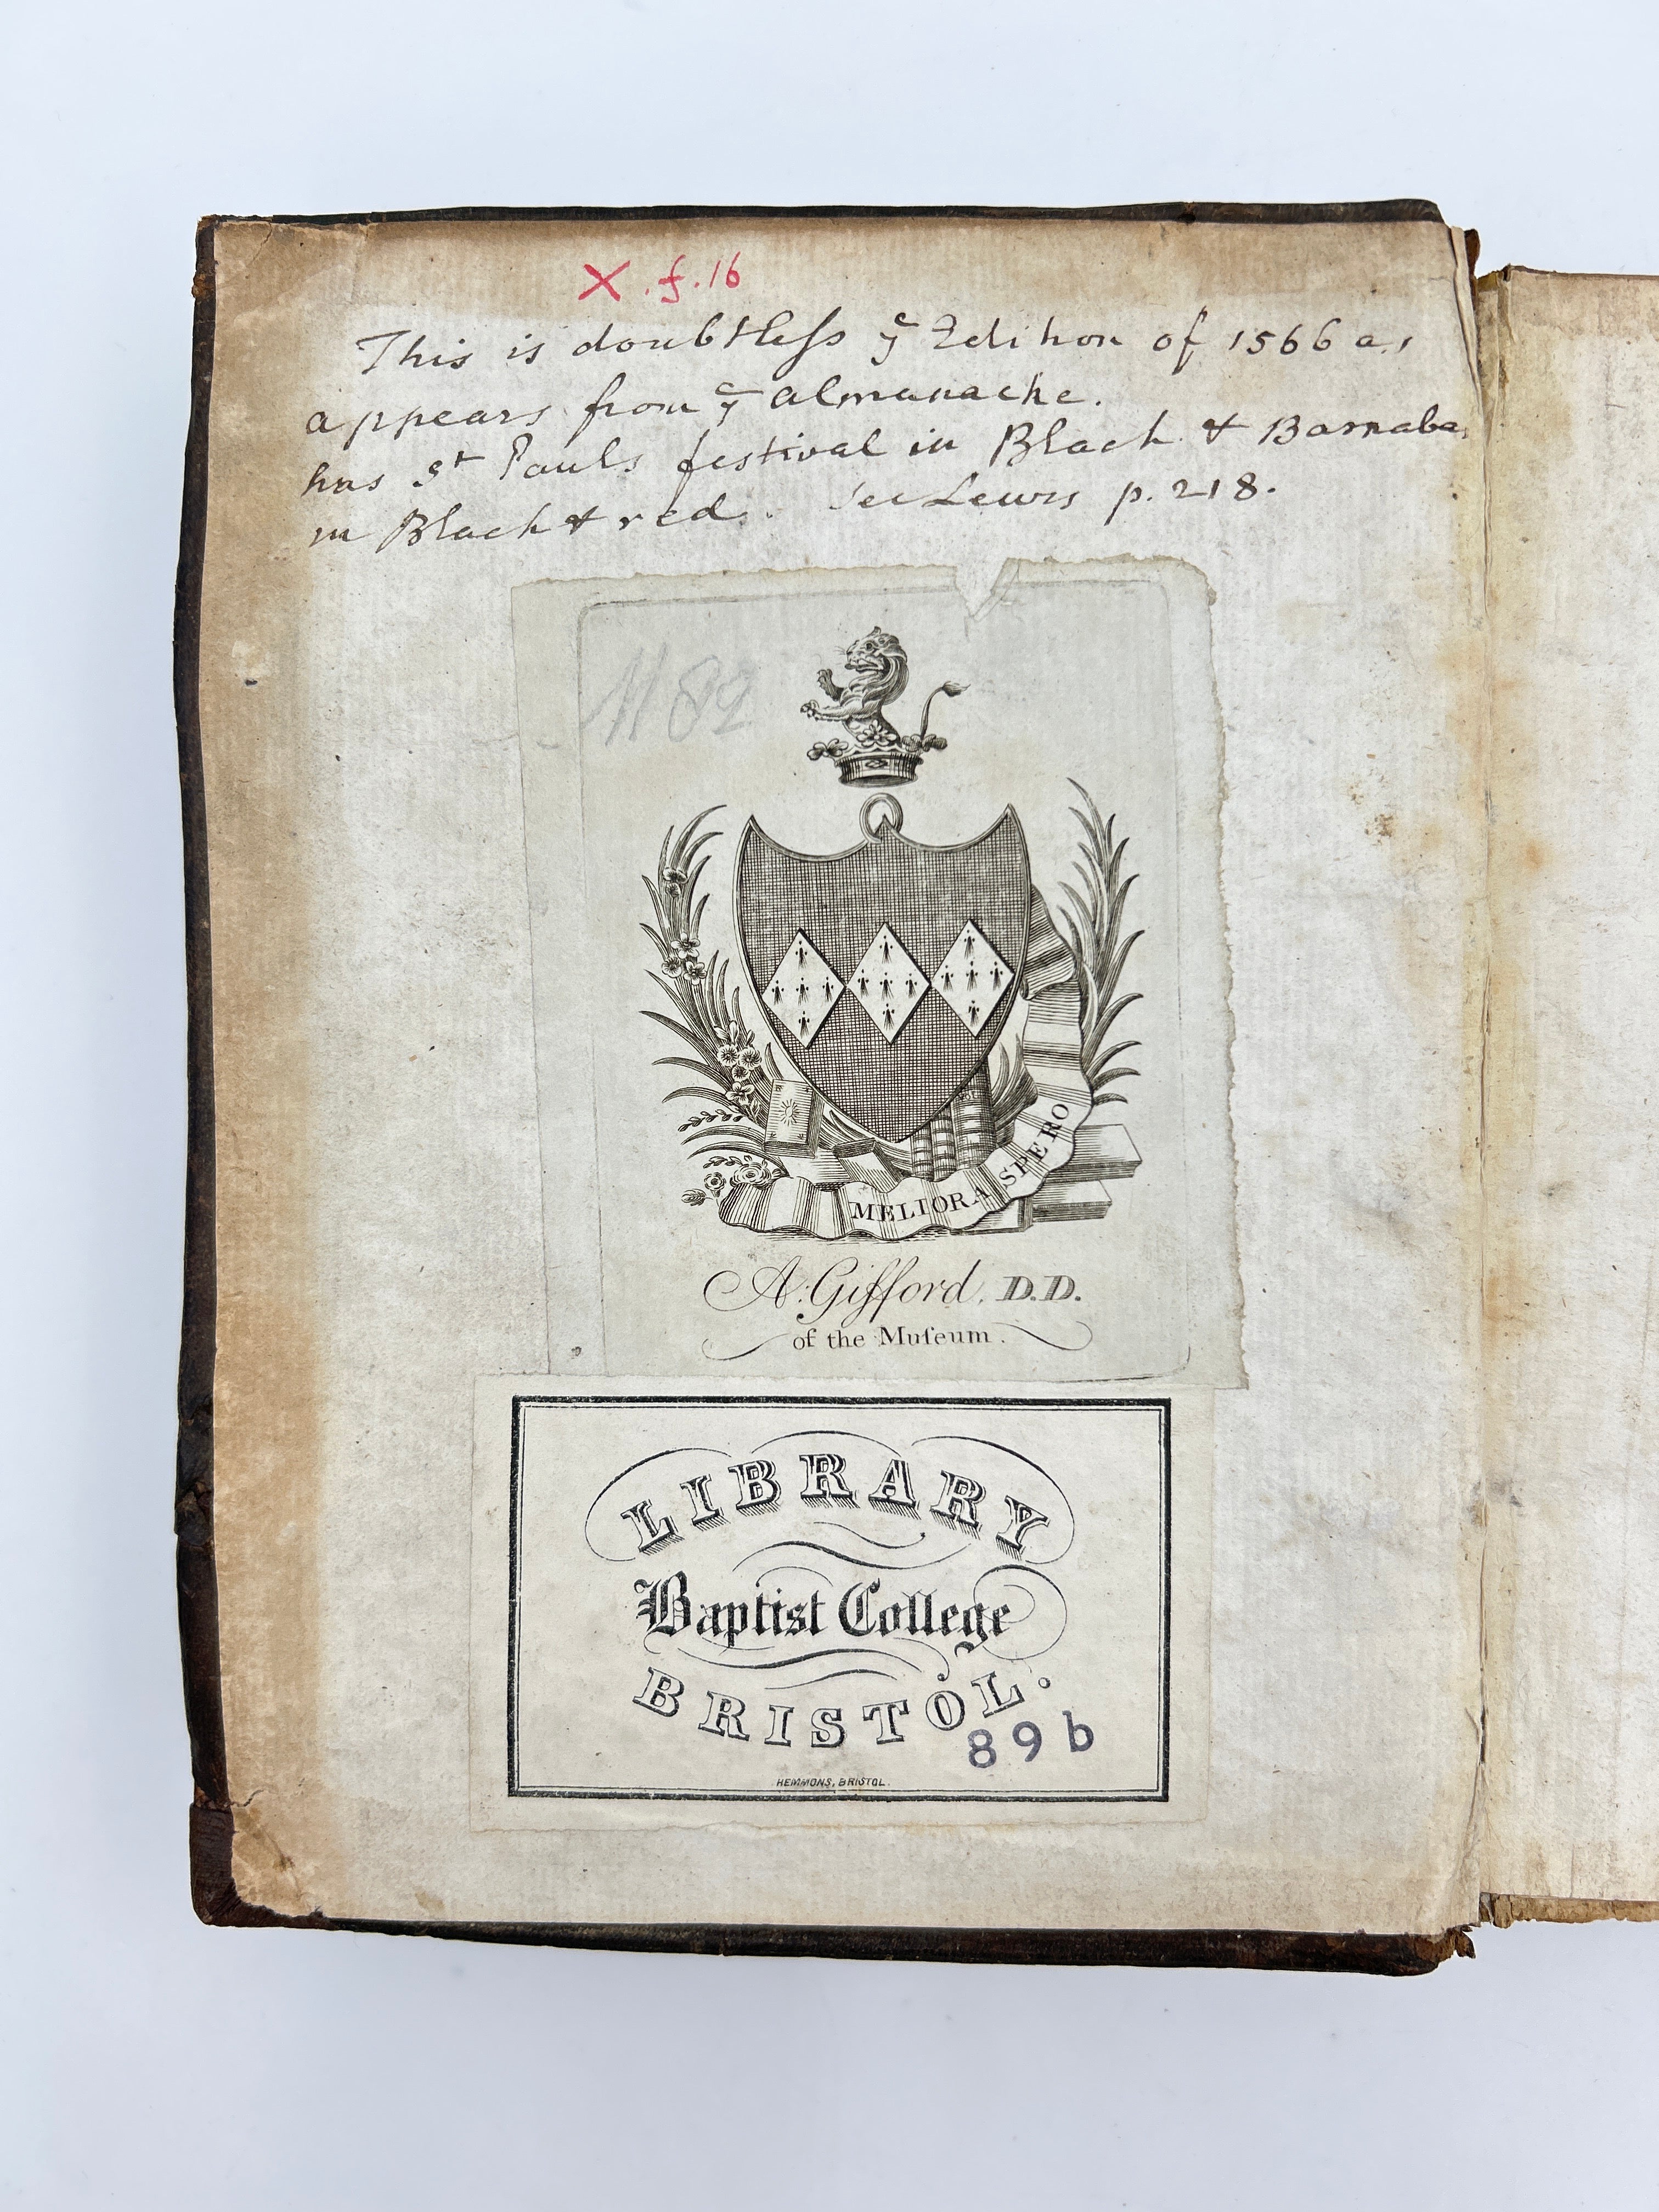 X.f.16
This is doubtleſs yͤ Edition of 1566 as
appears from yͤ almanacke.
has Sᵗ Pauls festival in Black & Barnabas
in Black & red. See Lewis p. 218.
MELIORA SPERO
A. Gifford, D.D.
of the Muſeum.
LIBRARY
Baptist College
BRISTOL.
89b
HEMMONS, BRISTOL.